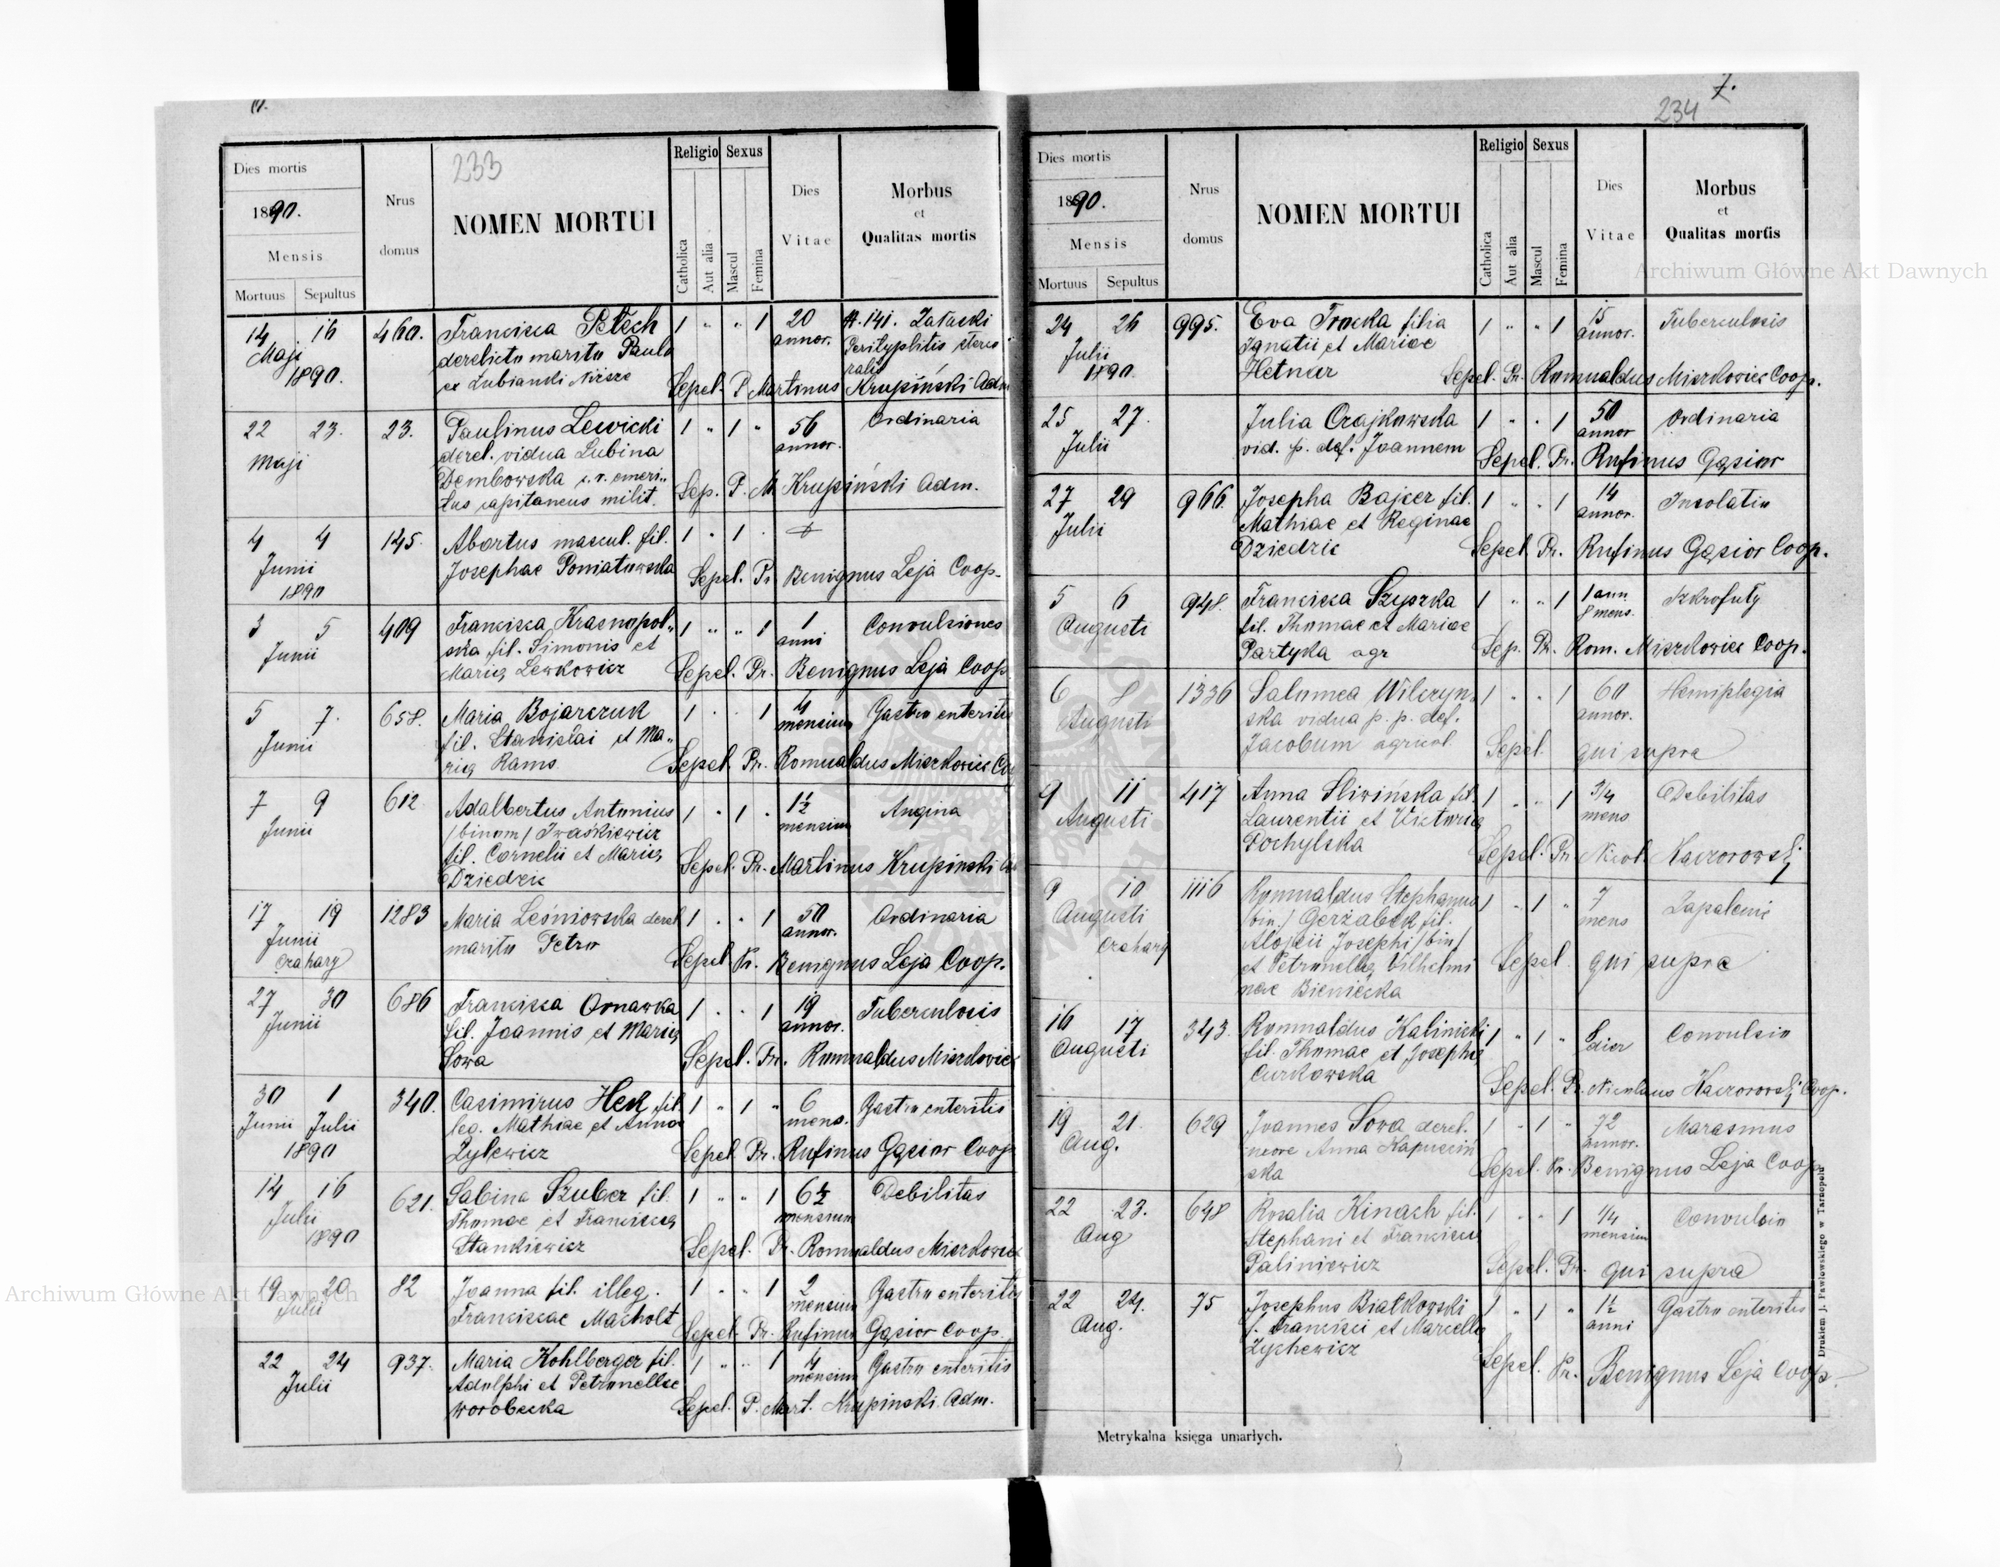 6.
Dies mortis
1890.
Mensis
Mortuus Sepultus
Nrus domus
233
NOMEN MORTUI
Religio
Catholica
Aut alia
Sexus
Mascul
Femina
Dies Vitae
Morbus
et
Qualitas mortis
14 16 460. Francisca Petech 1 " " 1 20 #.141. Załaski
Maji derelicto marito Paulo annor. Perityphlitis
1890. ex Łubianki Niższe Sepel. P. Martinus Krupiński Adm
22 23. 23. Paulinus Lewicki 1 " 1 " 56 Ordinaria
Maji derel. vidua Lubina annor.
Dembowska c. r. emeri-
tus capitaneus milit. Sep. P. M. Krupiński Adm.
4 4 145. Abortus mascul. fil. 1 . 1 . +
Junii Josephae Poniatowska
1890 Sepel. Pr. Benignus Leja Coop.
3 5 409 Francisca Krasnopol- 1 " " 1 1 Convulsiones
Junii ska fil. Simonis et anni
Mariae Lewkowicz Sepel. Pr. Benignus Leja Coop
5 7. 658. Maria Bojarczuk 1 . . 1 4 Gastro enteritis
Junii fil. Stanislai et Ma- mensium
riae Kams Sepel. Pr. Romualdus Mierkowicz Co
7 9 612 Adalbertus Antonius 1 . 1 . 1½ Angina
Junii /binom/ Iwaśkiewicz mensium
fil. Cornelii et Mariae
Dziedzic Sepel. Pr. Martinus Krupinski Ad
17 19 1283 Maria Leśniowska derel 1 . . 1 50 Ordinaria
Junii marito Petro annor.
Czahary Sepel Pr. Benignus Leja Coop.
27 30 686 Francisca Ornawka 1 . . 1 19 Tuberculosis
Junii fil. Joannis et Mariae annor.
Sowa Sepel. Pr. Romualdus Mierkowicz
30 1 340. Casimirus Hek fil. 1 " 1 " 6 Gastro enteritis
Junii Julii leg. Mathiae et Anna mens.
1890 Zylewicz Sepel Pr. Rufinus Gąsior Coop
14 16 621. Sabina Szuber fil. 1 " " 1 6½ Debilitas
Julii Thomae et Franciscae mensium
1890 Stankiewicz Sepel. Pr. Romualdus Mierkowicz
19 20 82 Joanna fil. illeg. 1 . " 1 2 Gastro enteritis
Julii Franciscae Macholt mensium
Sepel. Pr. Rufinus Gąsior Coop.
22 24 937. Maria Kohlberger fil. 1 " " 1 4 Gastro enteritis
Julii Adolphi et Petronellae mensium
Worobecka Sepel. P. Mart. Krupinski Adm.
7.
234
Dies mortis
1890.
Mensis
Mortuus Sepultus
Nrus domus
NOMEN MORTUI
Religio
Catholica
Aut alia
Sexus
Mascul
Femina
Dies Vitae
Morbus
et
Qualitas mortis
24 26 995. Eva Trocka filia 1 " " 1 15 Tuberculosis
Julii Ignatii et Mariae annor.
1890 Hetnar Sepel. Pr. Romualdus Mierkowicz Coop.
25 27. Julia Czajkowska 1 " . 1 50 Ordinaria
Julii vid. p. def. Joannem annor
Sepel. Pr. Rufinus Gąsior
27 29 966. Josepha Bajcer fil. 1 " . 1 14 Insolatio
Julii Mathiae et Reginae annor.
Dziedzic Sepel Pr. Rufinus Gąsior Coop.
5 6 948. Francisca Szyszka 1 " " 1 1 ann. Szkrofuły
Augusti fil. Thomae et Mariae 8 mens.
Partyka agr Sep. Pr. Rom. Mierkowicz Coop.
6 8 1336 Salomea Wilczyn- 1 . . 1 60 Hemiplegia
Augusti ska vidua p. p. def. annor.
Jacobum agricol. Sepel. qui supra
9 11 417 Anna Śliwińska fil. 1 . . 1 3/4 Debilitas
Augusti Laurentii et Victoriae mens
Pochylska Sepel. Pr. Nicol. Kaczorowski
9 10 1116 Romualdus Stephanus 1 " 1 " 7 Zapalenie
Augusti /bin./ Gerżabek fil. mens
Czahary Aloysii Josephi /bin/
et Petronellae Vilhelmi
nae Bieniecka Sepel qui supra
16 17 343. Romualdus Kalinicki 1 " 1 "  Convulsio
Augusti fil. Thomae et Josephae
Curkowska Sepel. Pr. Nicolaus Kaczorowski Coop.
19 21. 629 Joannes Sowa derel. 1 " 1 " 72 Marasmus
Aug. uxore Anna Kapuściń annor.
ska Sepel. Pr. Benignus Leja Coop
22 23. 648 Rosalia Kinach fil. 1 " " 1 1/4 Convulsio
Aug Stephani et Franciscae mensium
Paliniewicz Sepel. Pr. qui supra
22 24. 75 Josephus Białkowski 1 " 1 " 1½ Gastro enteritis
Aug. f. Francisci et Marcellae anni
Zychewicz Sepel. Pr. Benignus Leja Coop.
Metrykalna księga umarłych.
Drukiem J. Pawłowskiego w Tarnopolu
Archiwum Główne Akt Dawnych
Archiwum Główne Akt Dawnych